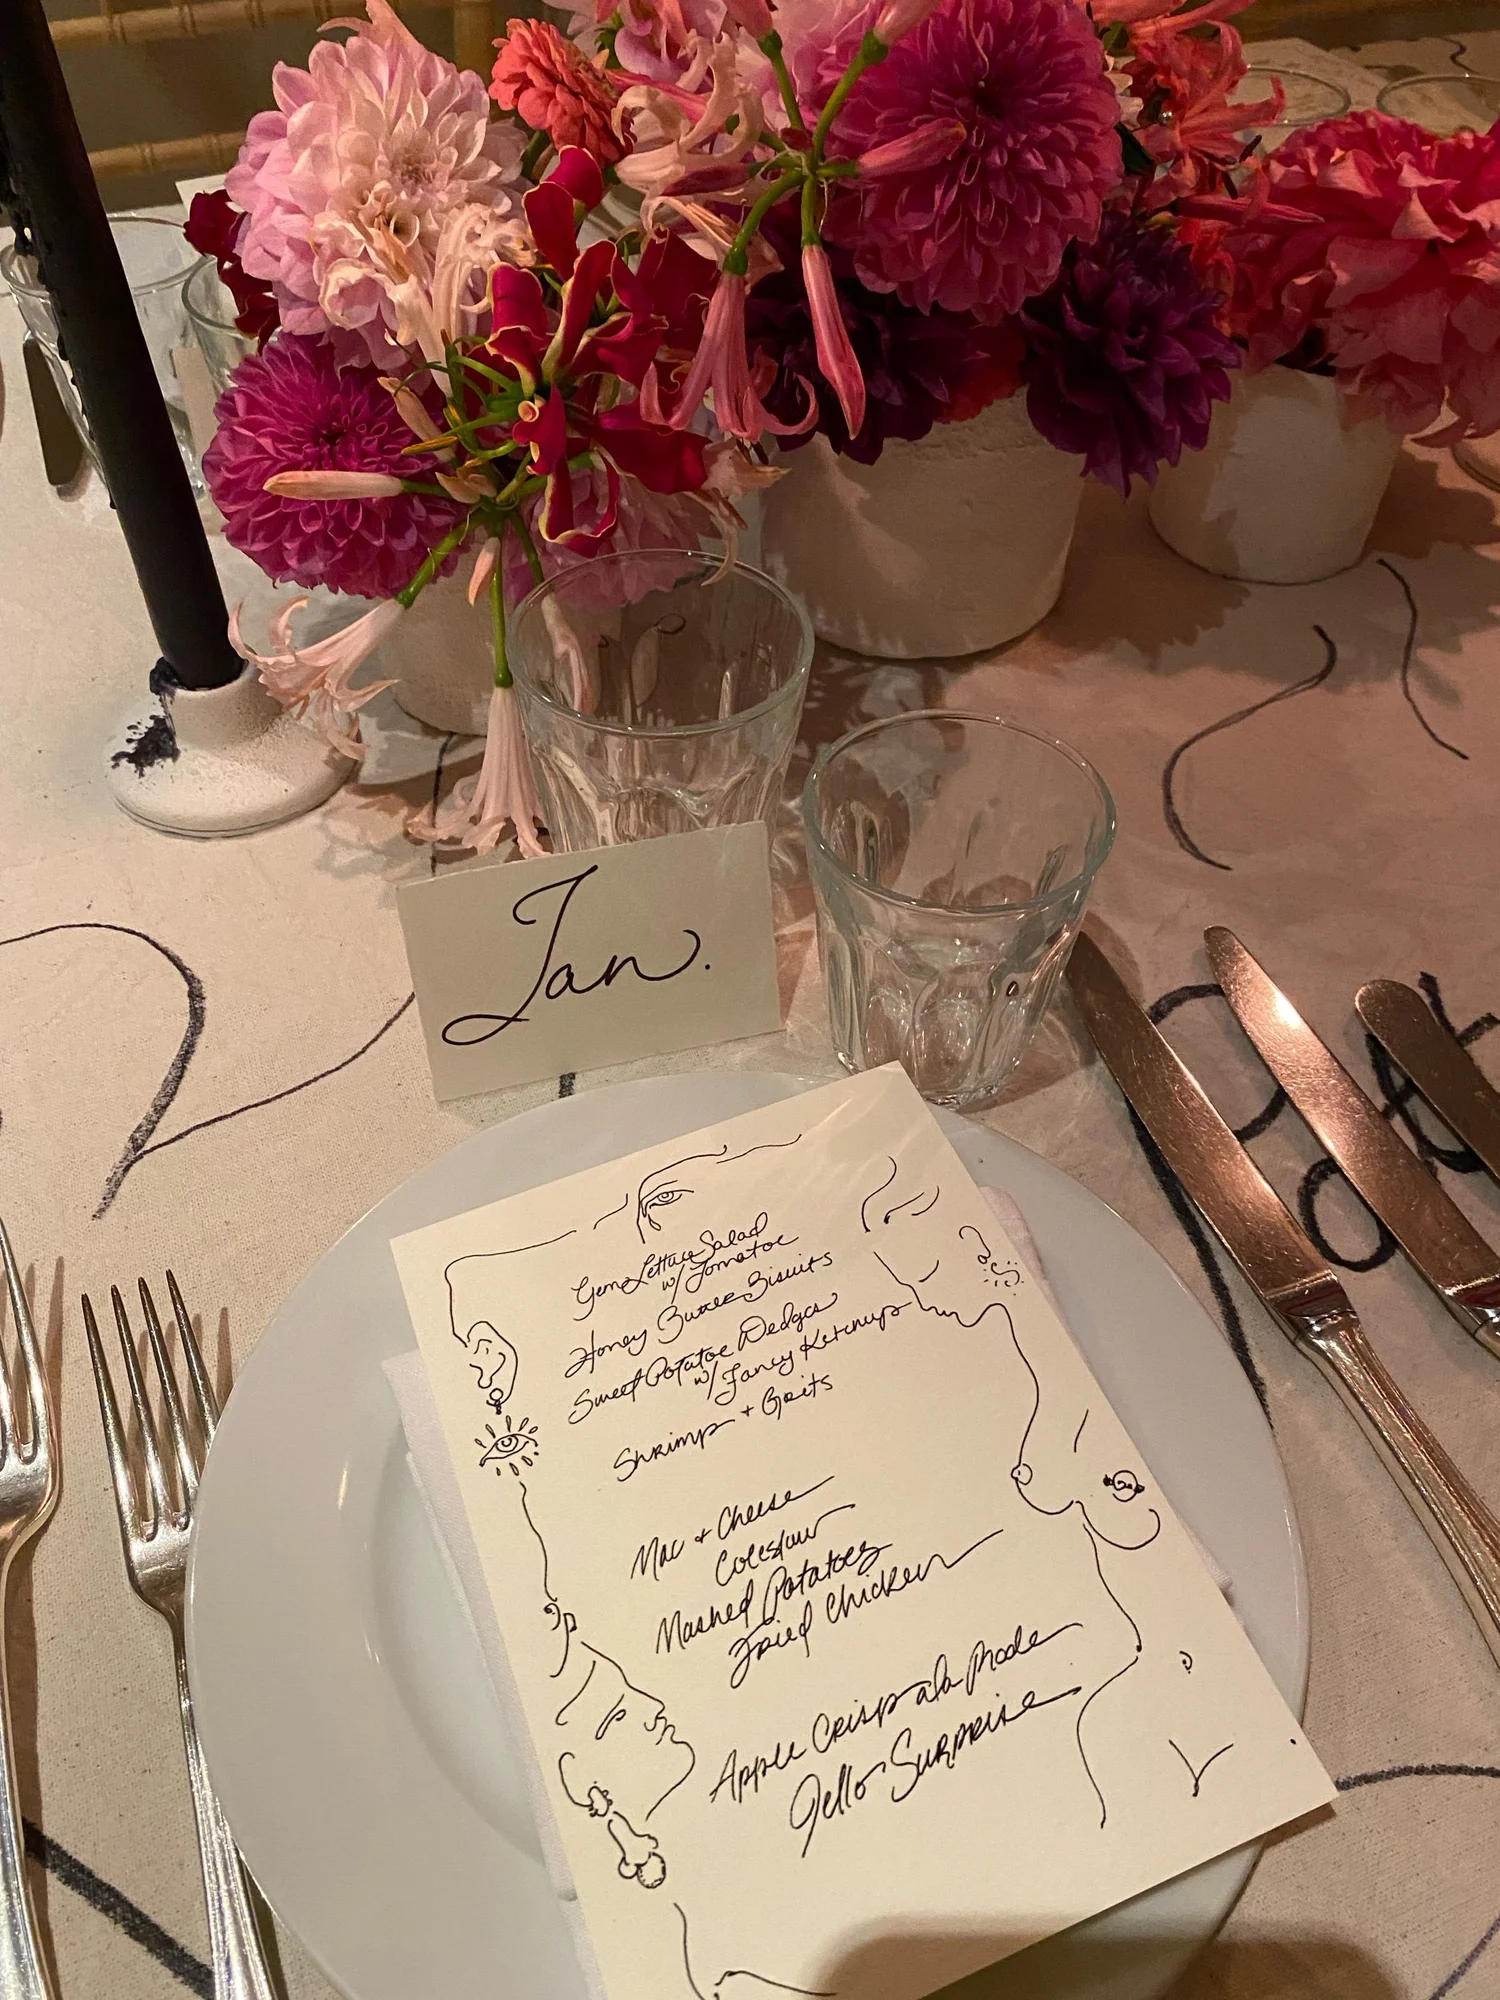 Jan.
Gem Lettuce Salad
w/ Tomatoe
Honey Butter Biscuits
Sweet Potatoe Wedges
w/ Fancy Ketchup
Shrimp + Grits
Mac + Cheese
Coleslaw
Mashed Potatoes
Fried Chicken
Apple Crisp ala Mode
Jello Surprise